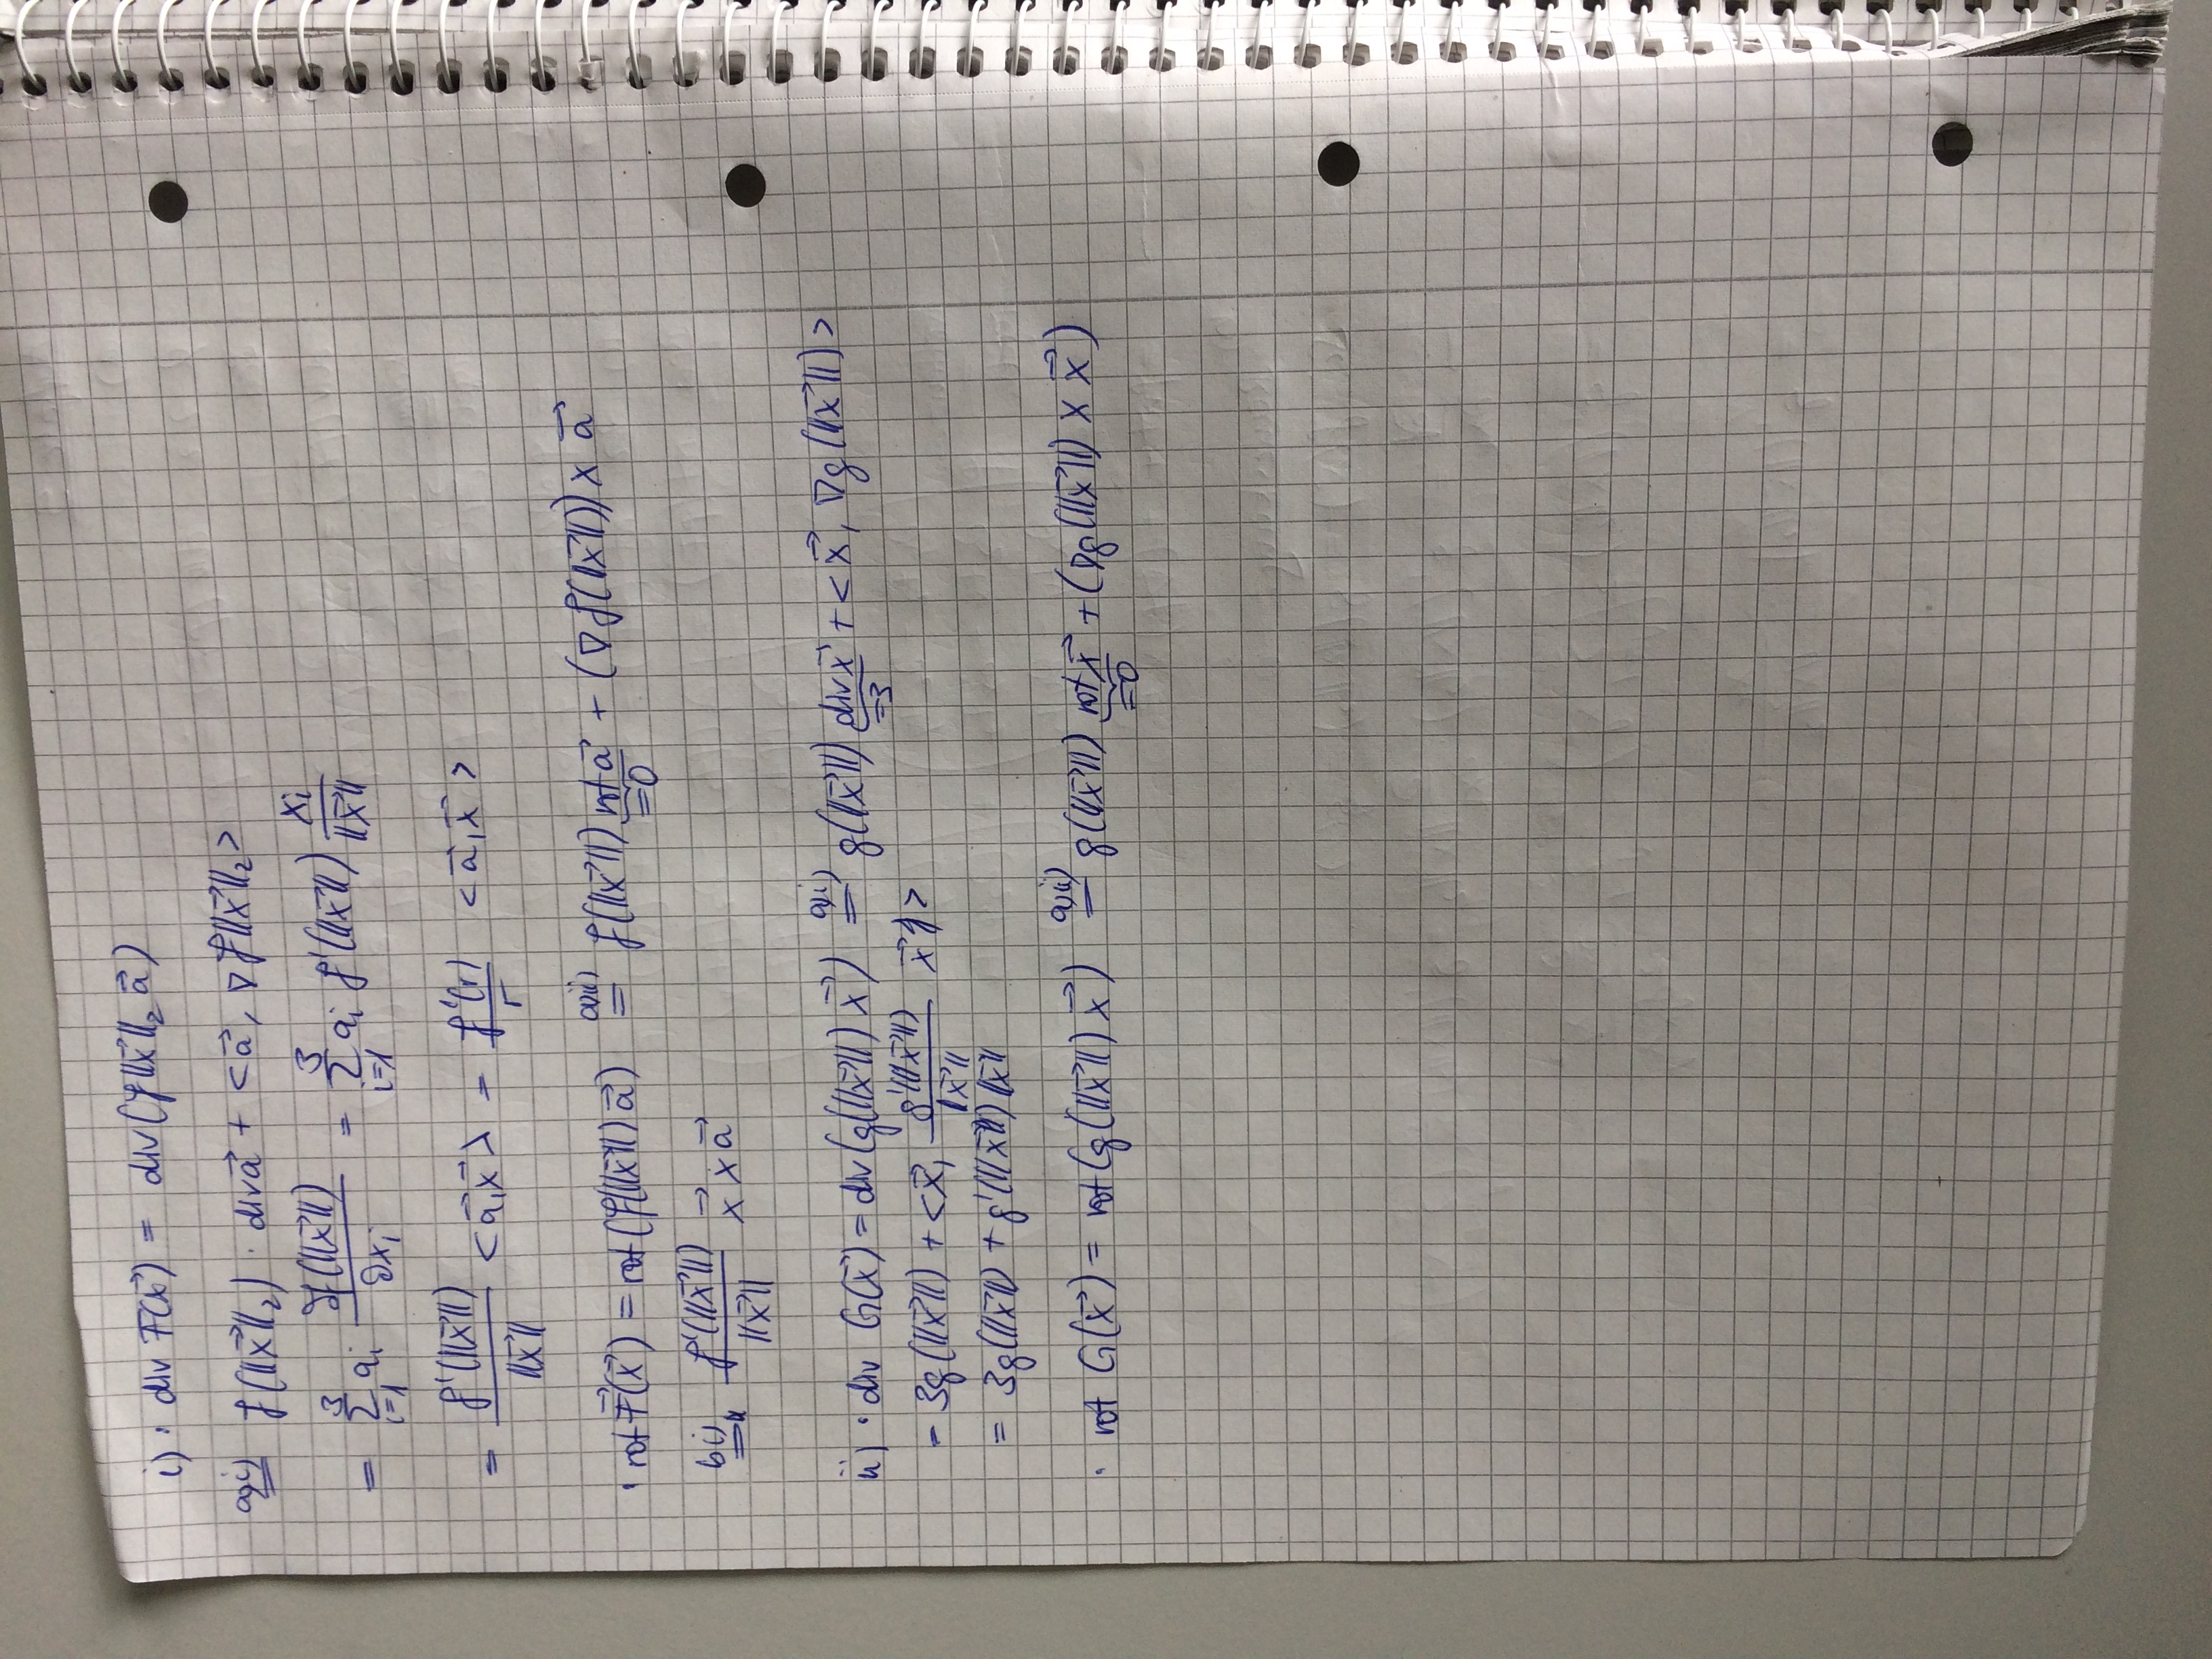 i) · div F(x⃗) = div(f‖x⃗‖₂ a⃗)
a)i) = f(‖x⃗‖₂) · div a⃗ + <a⃗, ∇f‖x⃗‖₂>
= ∑_{i=1}^{3} aᵢ ∂f(‖x⃗‖)/∂xᵢ = ∑_{i=1}^{3} aᵢ f'(‖x⃗‖) xᵢ/‖x⃗‖
= f'(‖x⃗‖)/‖x⃗‖ <a⃗,x⃗> = f'(r)/r <a⃗,x⃗>
· rot F⃗(x⃗) = rot(f(‖x⃗‖) a⃗) a)ii) = f(‖x⃗‖) rot a⃗ =0 + (∇f(‖x⃗‖)) × a⃗
b)i) = f'(‖x⃗‖)/‖x⃗‖ x⃗ × a⃗
ii) · div G(x⃗) = div(g(‖x⃗‖) x⃗) a)i) = g(‖x⃗‖) div x⃗ =3 + <x⃗, ∇g(‖x⃗‖)>
= 3g(‖x⃗‖) + <x⃗, g'(‖x⃗‖)/‖x⃗‖ x⃗>
= 3g(‖x⃗‖) + g'(‖x⃗‖)‖x⃗‖
· rot G(x⃗) = rot(g(‖x⃗‖) x⃗) a)ii) = g(‖x⃗‖) rot x⃗ =0 + (∇g(‖x⃗‖) × x⃗)